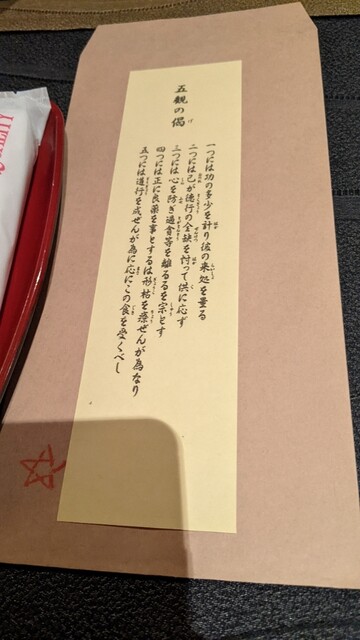 五観の偈
一つには功の多少を計り彼の来処を量る
二つには己が徳行の全缺を忖って供に応ず
三つには心を防ぎ過貪等を離るるを宗とす
四つには正に良薬を事とするは形枯を療ぜんが為なり
五つには道行を成ぜんが為に応にこの食を受くべし